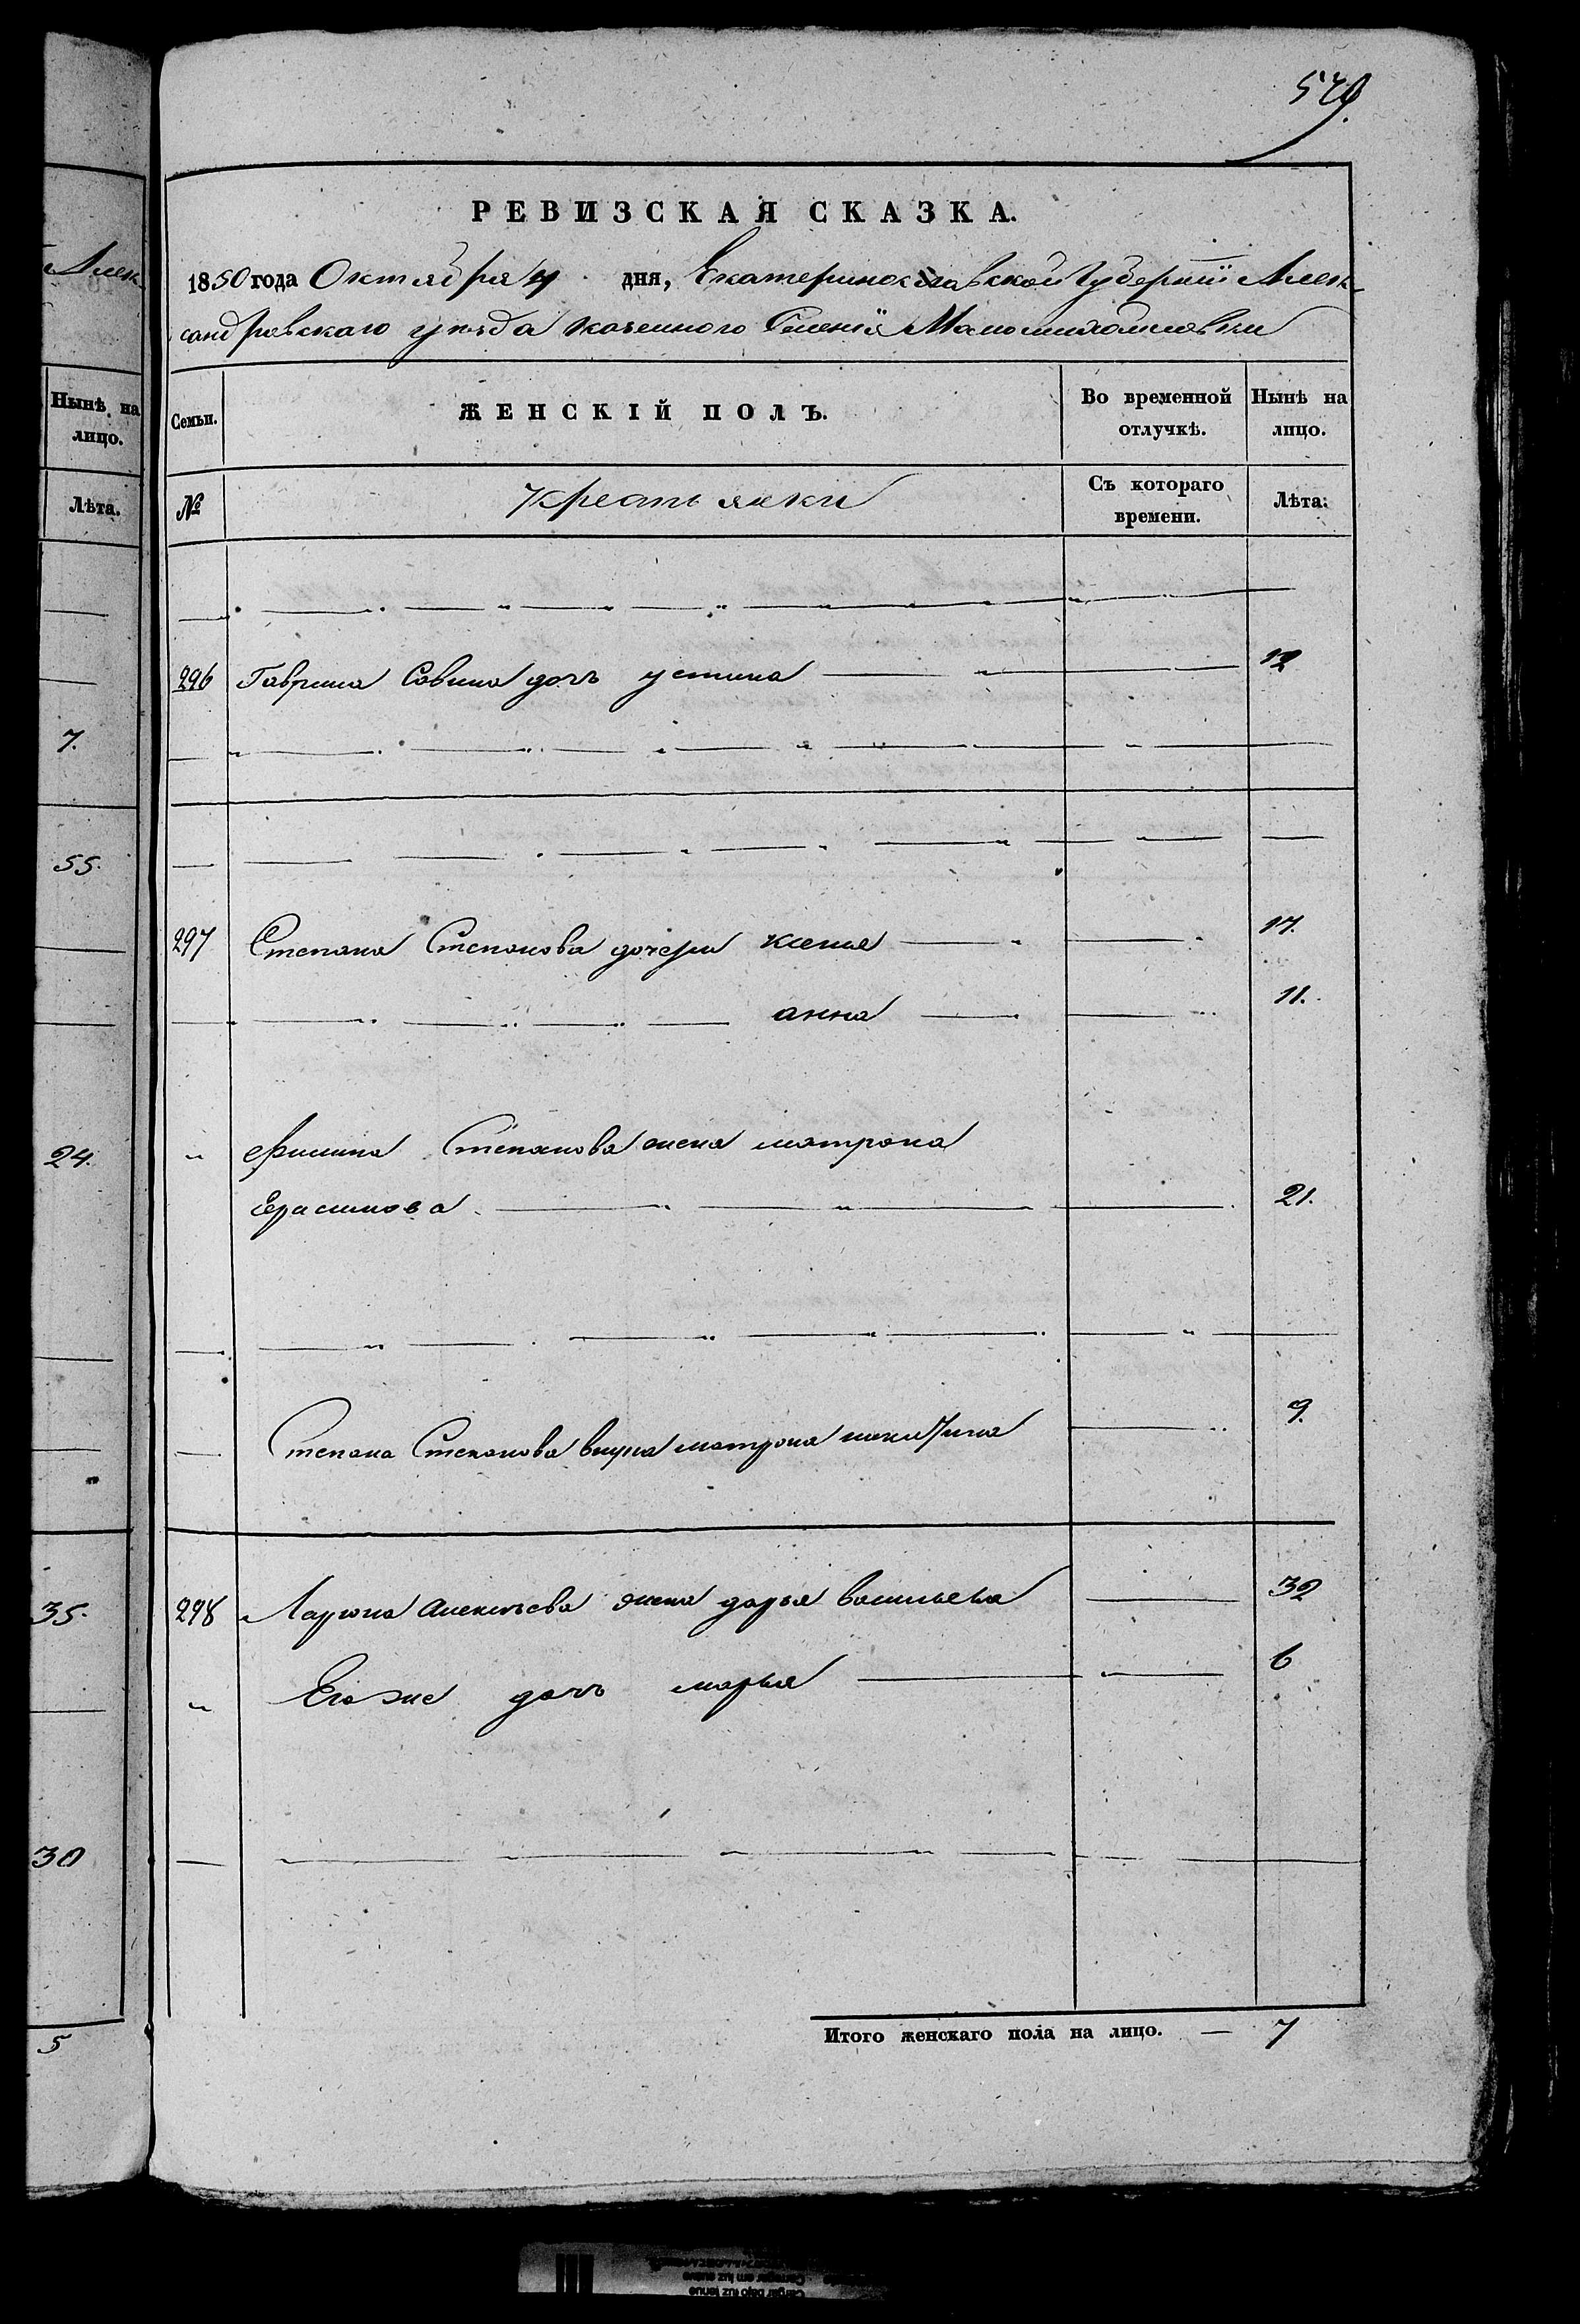 579.
РЕВИЗСКАЯ СКАЗКА.
1850 года Октября 4 дня, Екатеринославской Губернiи Алек-
сандровскаго уезда казенного Селенiя Маломихайловки
Семьи.
ЖЕНСКІЙ ПОЛЪ.
Во временной отлучкѣ.
Нынѣ на лицо.
№
Крестьянки
Съ котораго времени.
Лѣта.
296 Гаврила Савина дочь устина 12
297 Степана Степанова дочери ксения 17.
анна 11.
Филипа Степанова жена матрона
Ерасимова 21.
Степана Степанова внука матрона никитина 9.
298 Лариона Алексѣева жена дарья васильева 32
Его же дочь марья 6
Итого женскаго пола на лицо. — 7
Алек
Нынѣ на лицо.
Лѣта.
7.
55.
24.
35.
30
5